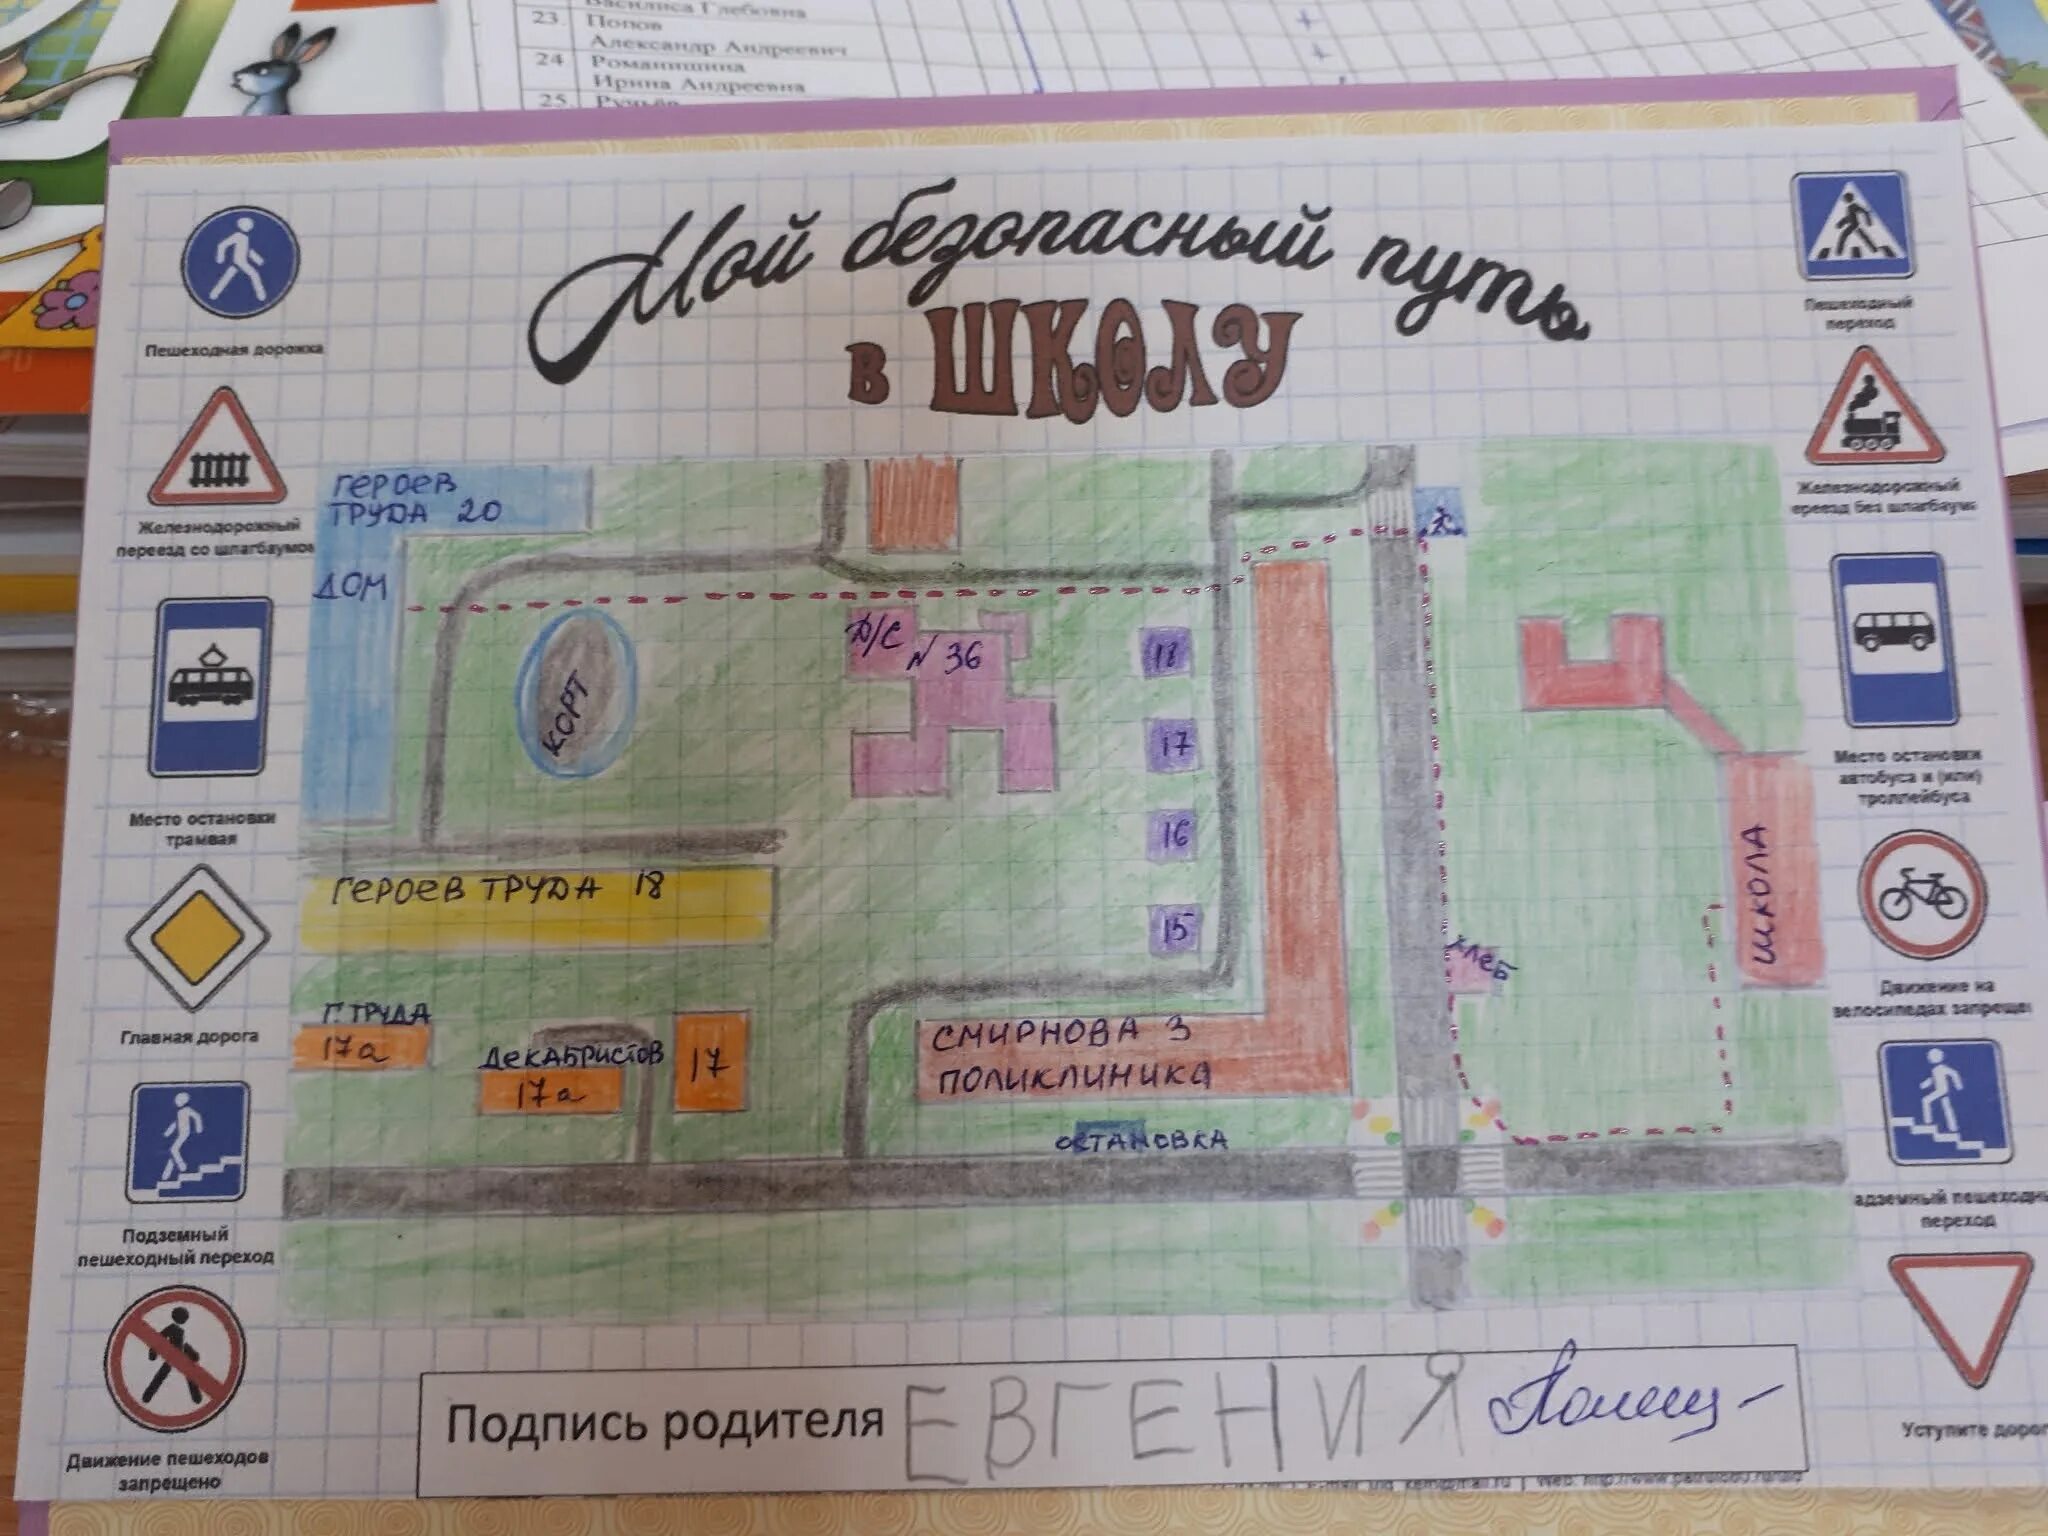 Василиса Глебовна
23. Попов
Александр Андреевич
24 Романишина
Ирина Андреевна
25.
Мой безопасный путь
в ШКОЛУ
Пешеходная дорожка
Железнодорожный
переезд со шлагбаумом
Место остановки
трамвая
Главная дорога
Подземный
пешеходный переход
Движение пешеходов
запрещено
ГЕРОЕВ
ТРУДА 20
ДОМ
КОРТ
Д/С
N 36
18
17
16
15
ГЕРОЕВ ТРУДА 18
Г. ТРУДА
17а
ДЕКАБРИСТОВ
17а
17
СМИРНОВА 3
ПОЛИКЛИНИКА
ОСТАНОВКА
ХЛЕБ
ШКОЛА
Пешеходный
переход
Железнодорожный
ереезд без шлагбаум
Место остановки
автобуса и (или)
троллейбуса
Движение на
велосипедах запреще
адземный пешеходн
переход
Уступите дорог
Подпись родителя ЕВГЕНИЯ